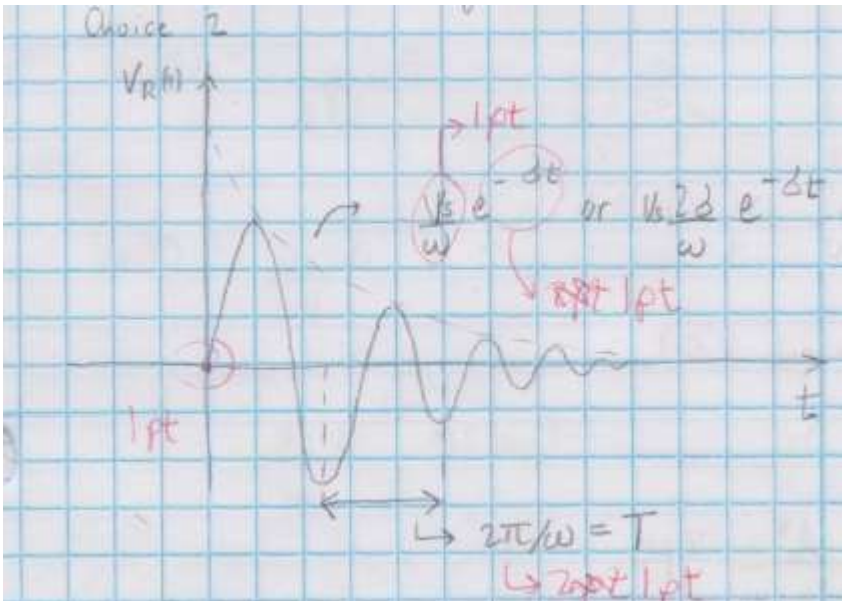 Choice 2
V_R(t)
1pt
Vs/ω e^-αt or Vs 2α/ω e^-αt
1pt
1pt
t
2π/ω = T
1pt